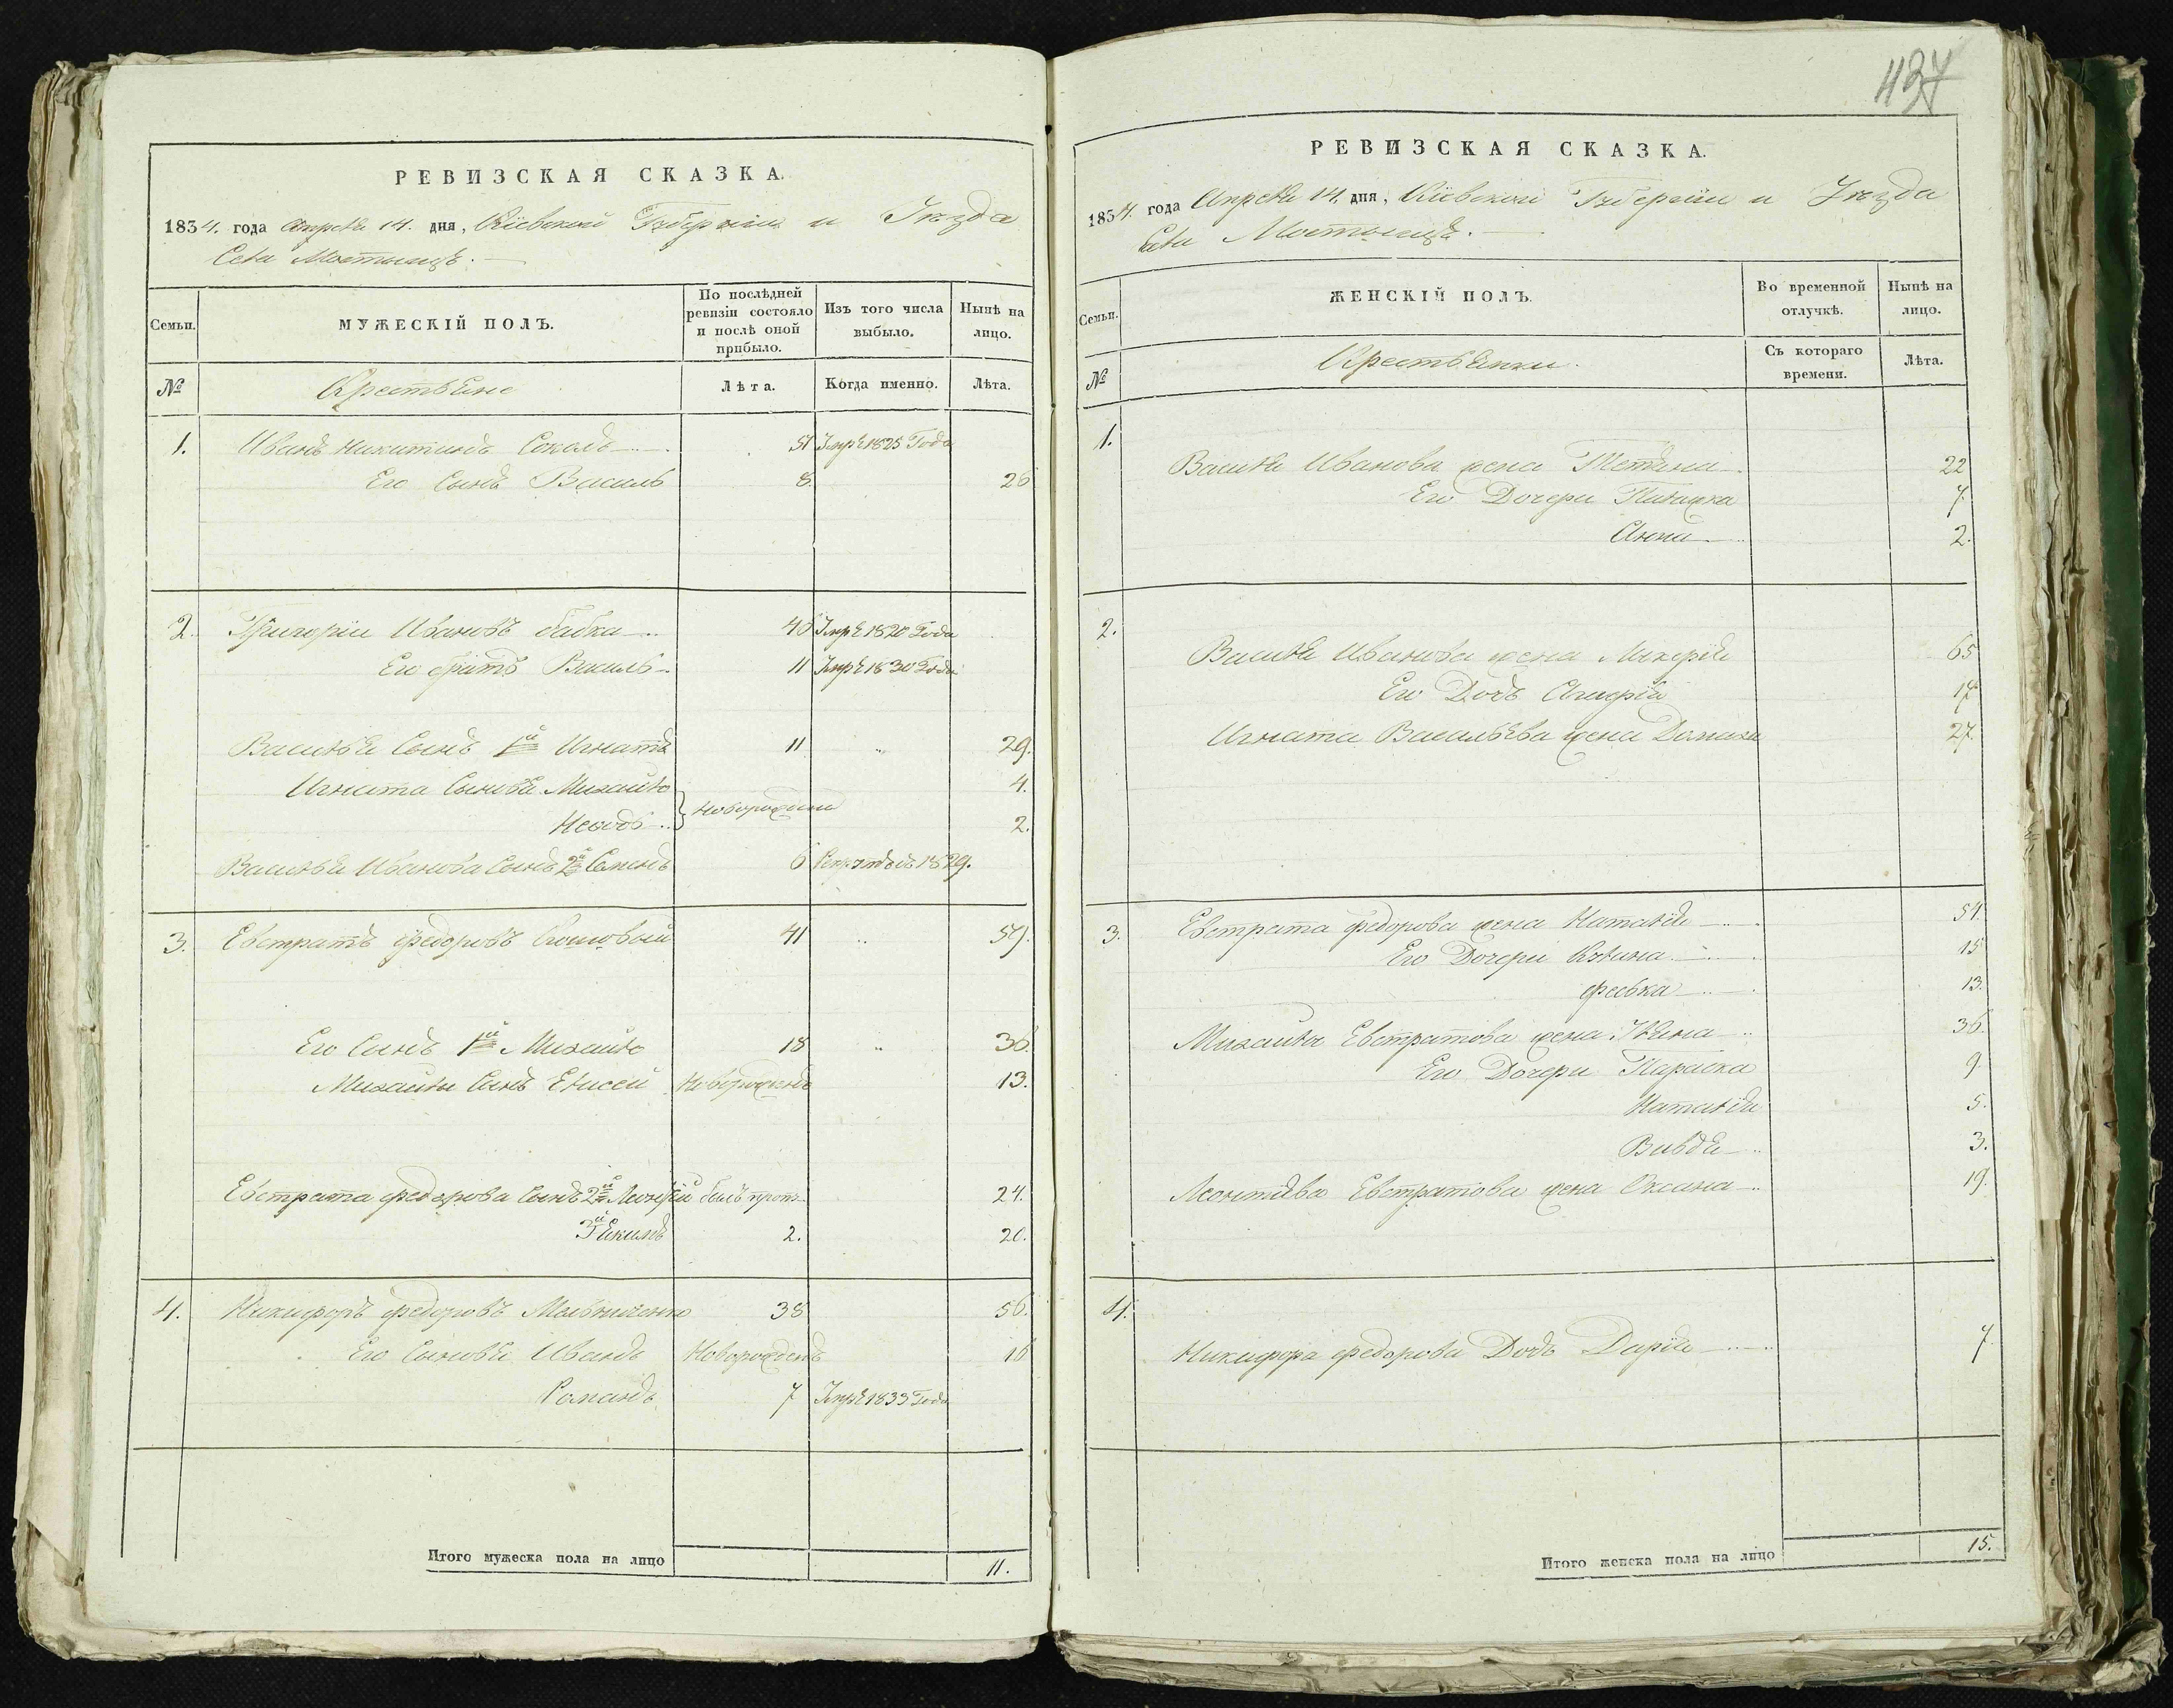 437
РЕВИЗСКАЯ СКАЗКА.
1834. года Апреля 14. дня, Кіевской Губерніи и Уезда
Села Мостыще.
Семьи. МУЖЕСКІЙ ПОЛЪ. По послѣдней ревизіи состояло и послѣ оной прибыло. Изъ того числа выбыло. Нынѣ на лицо.
№ Крестьяне Лѣта. Когда именно. Лѣта.
1. Иванъ Никитинъ Соколъ 51 Умре 1825 Года
Его Сынъ Василь 8. 26
2. Григорій Ивановъ бабка 40 Умре 1820 Года
Его братъ Василь Умре 1830 Года
Василья Сынъ 1й Игнатъ 11 " 29.
Игната Сыновья Михайло 4.
Новорожденны
2.
Василья Иванова Сынъ 2й Семенъ 6 1829.
3. Евстратъ Федоровъ 41 " 59.
Его Сынъ 1й Михайло 18 " 36.
Михайлы Сынъ Елисей Новорожденъ 13.
Евстрата Федорова Сынъ 2й Леонтій былъ проп. 24.
3й Якимъ 2. 20.
4. Никифоръ Федоровъ Мельниченко 38 56.
Его Сыновья Иванъ Новорожденъ 16
Романъ 7 Умре 1833 Года
Итого мужеска пола на лицо 11.
РЕВИЗСКАЯ СКАЗКА.
1834. года Апреля 14. дня, Кіевской Губерніи и Уезда
Села Мостыще.
Семьи. ЖЕНСКІЙ ПОЛЪ. Во временной отлучкѣ. Нынѣ на лицо.
№ Крестьянки. Съ котораго времени. Лѣта.
1.
Василя Иванова жена Тетяна 22
Его Дочери Палашка 7.
Анна 2.
2.
Василя Иванова жена Лукерія 65
Его Дочь 17
Игната Васильева жена Домина 27.
3. Евстрата Федорова жена Наталія 51.
Его Дочери Улина 15
Февка 13.
Михайлы Евстратова жена Уляна 36.
Его Дочери Параска 9
Наталія 5.
Вивдя 3.
Леонтіева Евстратова жена Оксана 19.
4.
Никифора Федорова Дочь Дарія 7
Итого женска пола на лицо 15.